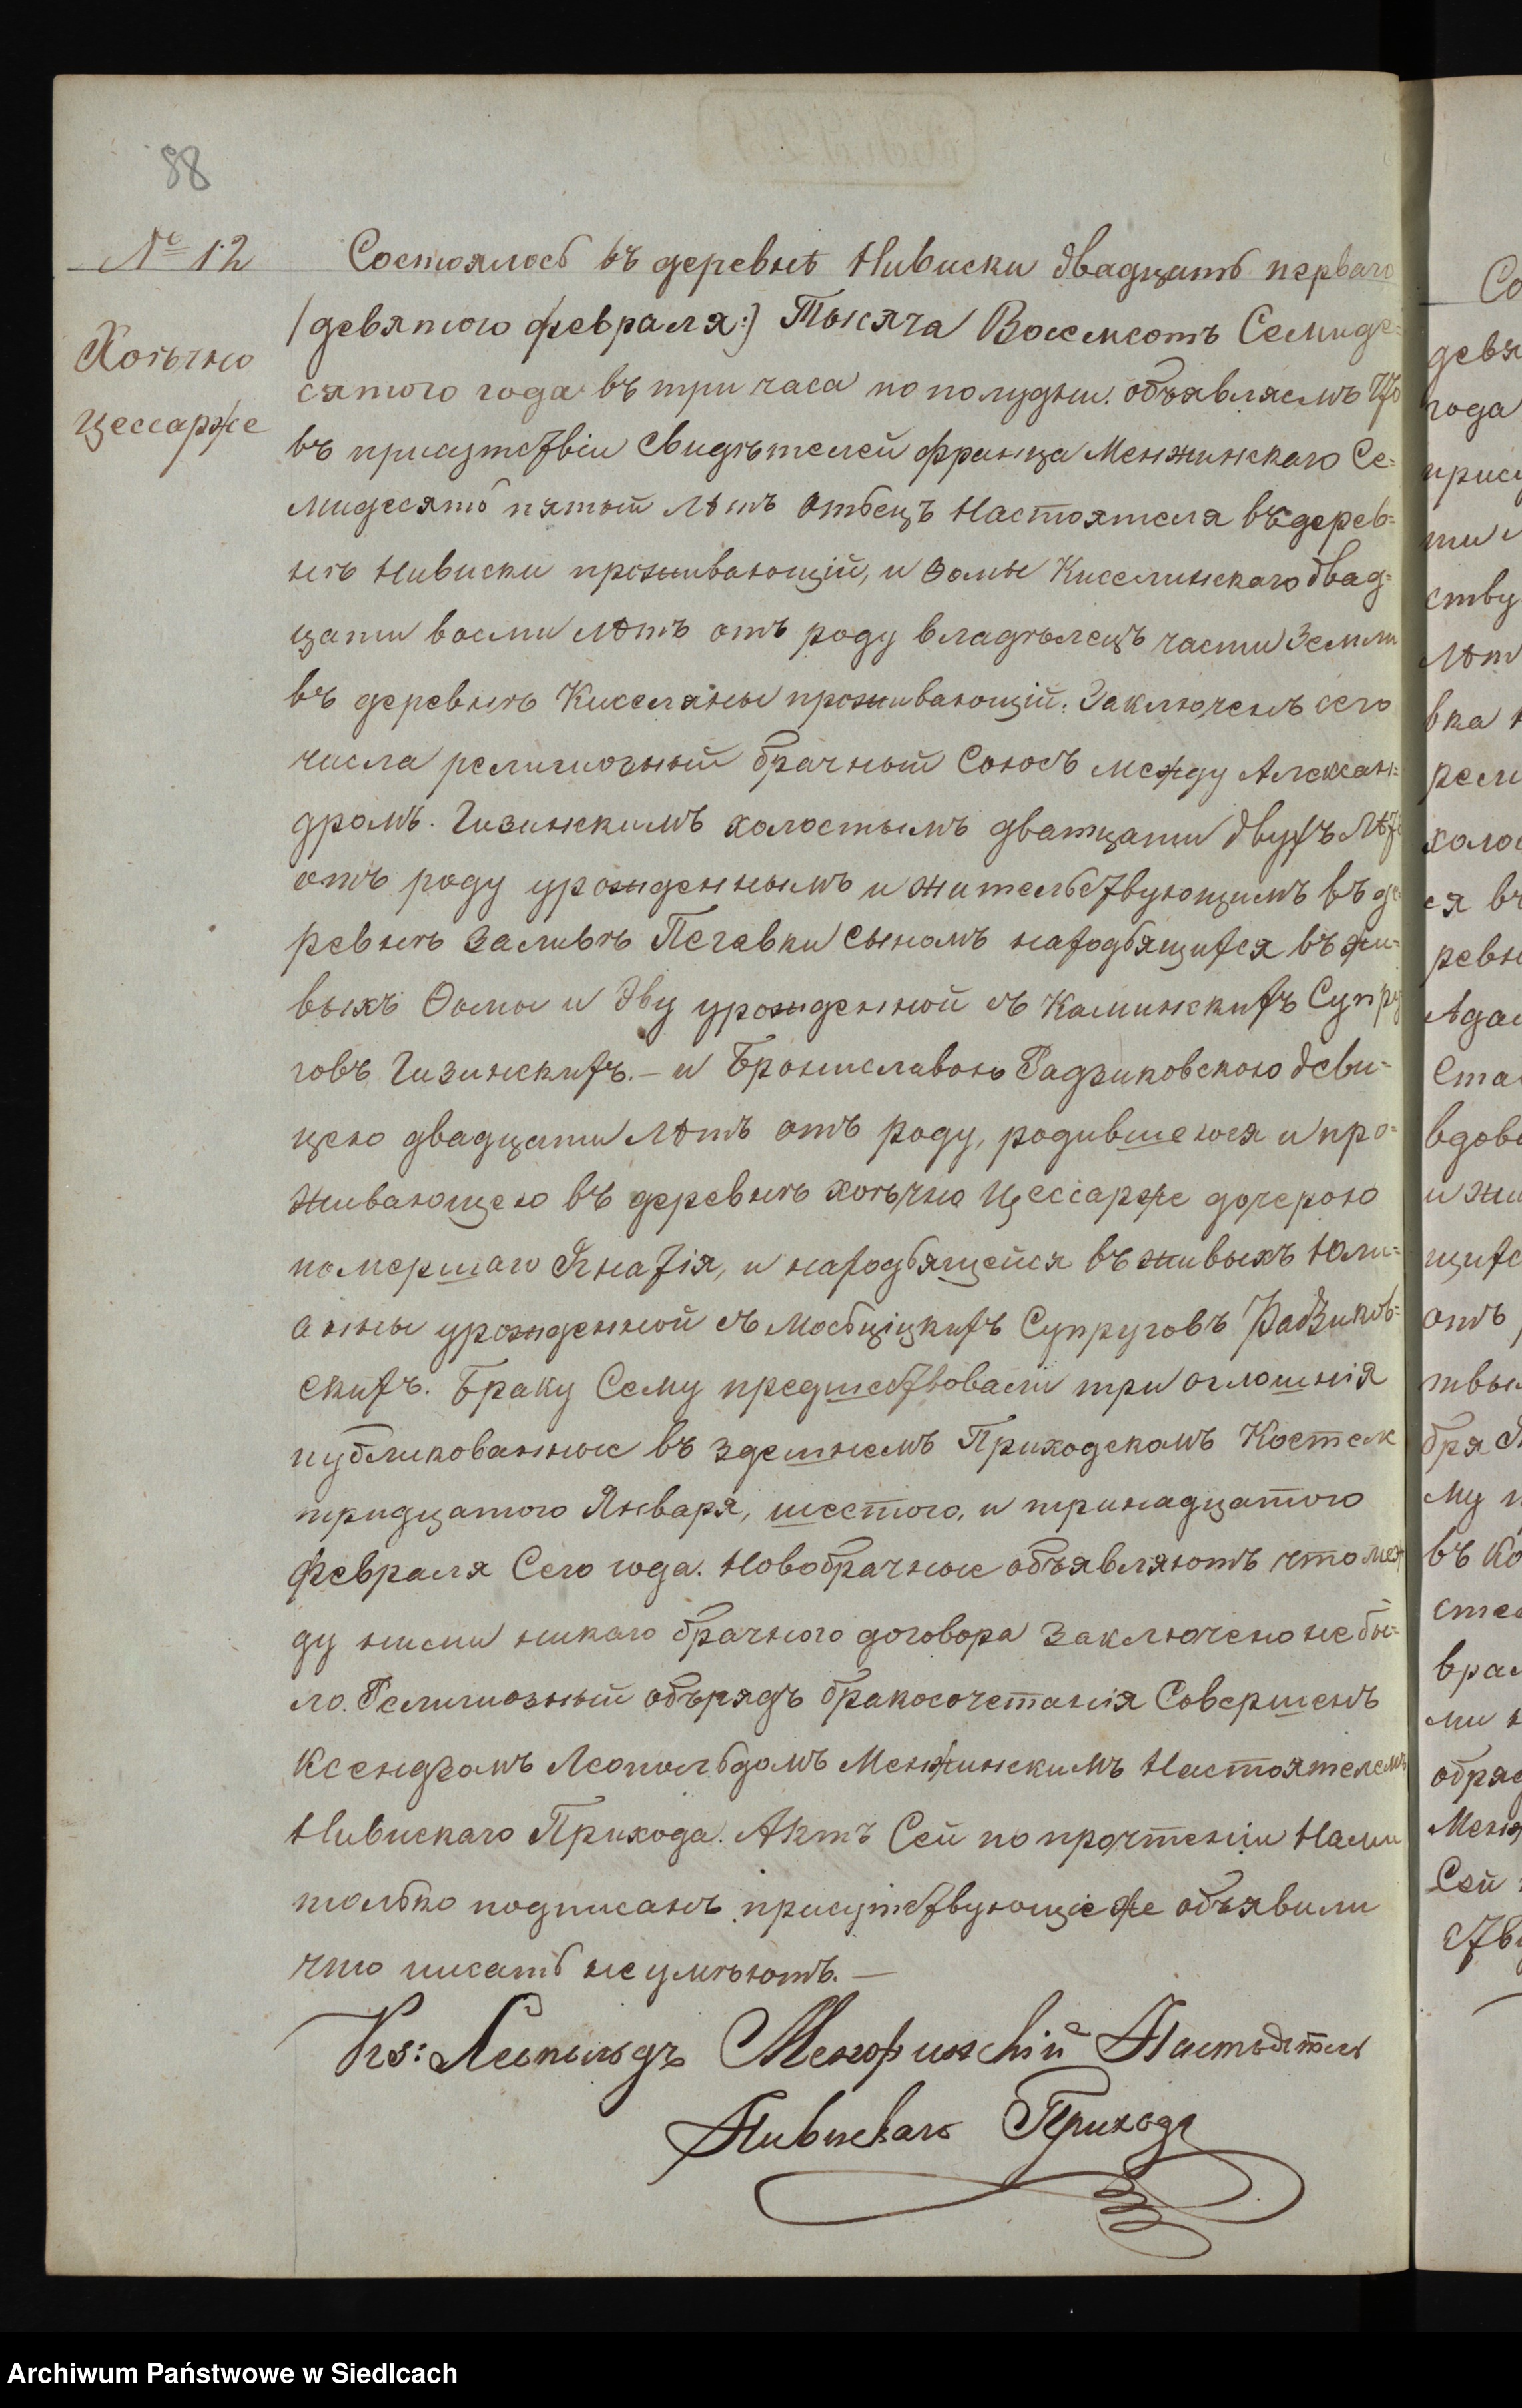 88
№ 12
Хотычно
цессарже
Состоялось въ деревнѣ Нивиски двадцать перваго
/девятого февраля:/ Тысяча Восемсотъ Семиде=
сятого года въ три часа по полудни. объявляемъ что
въ присутствіи Свидѣтелей франца Менжинскаго Се=
мидесять пятый лѣтъ отьецъ Настоятеля въ дерев=
нѣ Нивиски проживающій, и Ѳомы Киселинскаго двад=
цати восми лѣтъ отъ роду владѣлецъ части Земли
въ деревнѣ Киселяны проживающій. Заключенъ сего
числа религиозный брачный Союзъ между Алексан=
дромъ. Гизинскимъ холостымъ дватцати двухъ лѣтъ
отъ роду урожденнымъ и жительствующимъ въ де
ревнѣ Заливѣ Пегавки сыномъ находящихся въ жи=
выхъ Ѳомы и Эву урожденной съ Каминскихъ Супру
говъ Гизинскихъ. — и Брониславою Радзиковскою деви=
цею двадцати лѣтъ отъ роду, родившеюся и про=
живающею въ деревнѣ хотычно Цессарже дочерою
помершаго Игнатія, и находящейся въ живыхъ Юли=
анны урожденной съ Мосціцкихъ Супруговъ Радзиков=
скихъ. Браку Сему предшествовали три оглошнія
публикованные въ здешнемъ Приходскомъ Костелѣ
тридцатого Января, шестого, и тринадцатого
февраля Сего года. Новобрачные объявляютъ что меж
ду ними никаго брачного договора заключено не бы=
ло. Религиозный обърядъ бракосочетанія Совершенъ
Ксендзомъ Леопольдомъ Менжинскимъ Настоятелемъ
Нивискаго Прихода. Актъ Сей по прочтеніи Нами
только подписанъ присутствующіе же объявили
что писать не умѣютъ. —
Кз: Леопольдъ Менжинскій Настоятель
Нивискаго Прихода
Archiwum Państwowe w Siedlcach